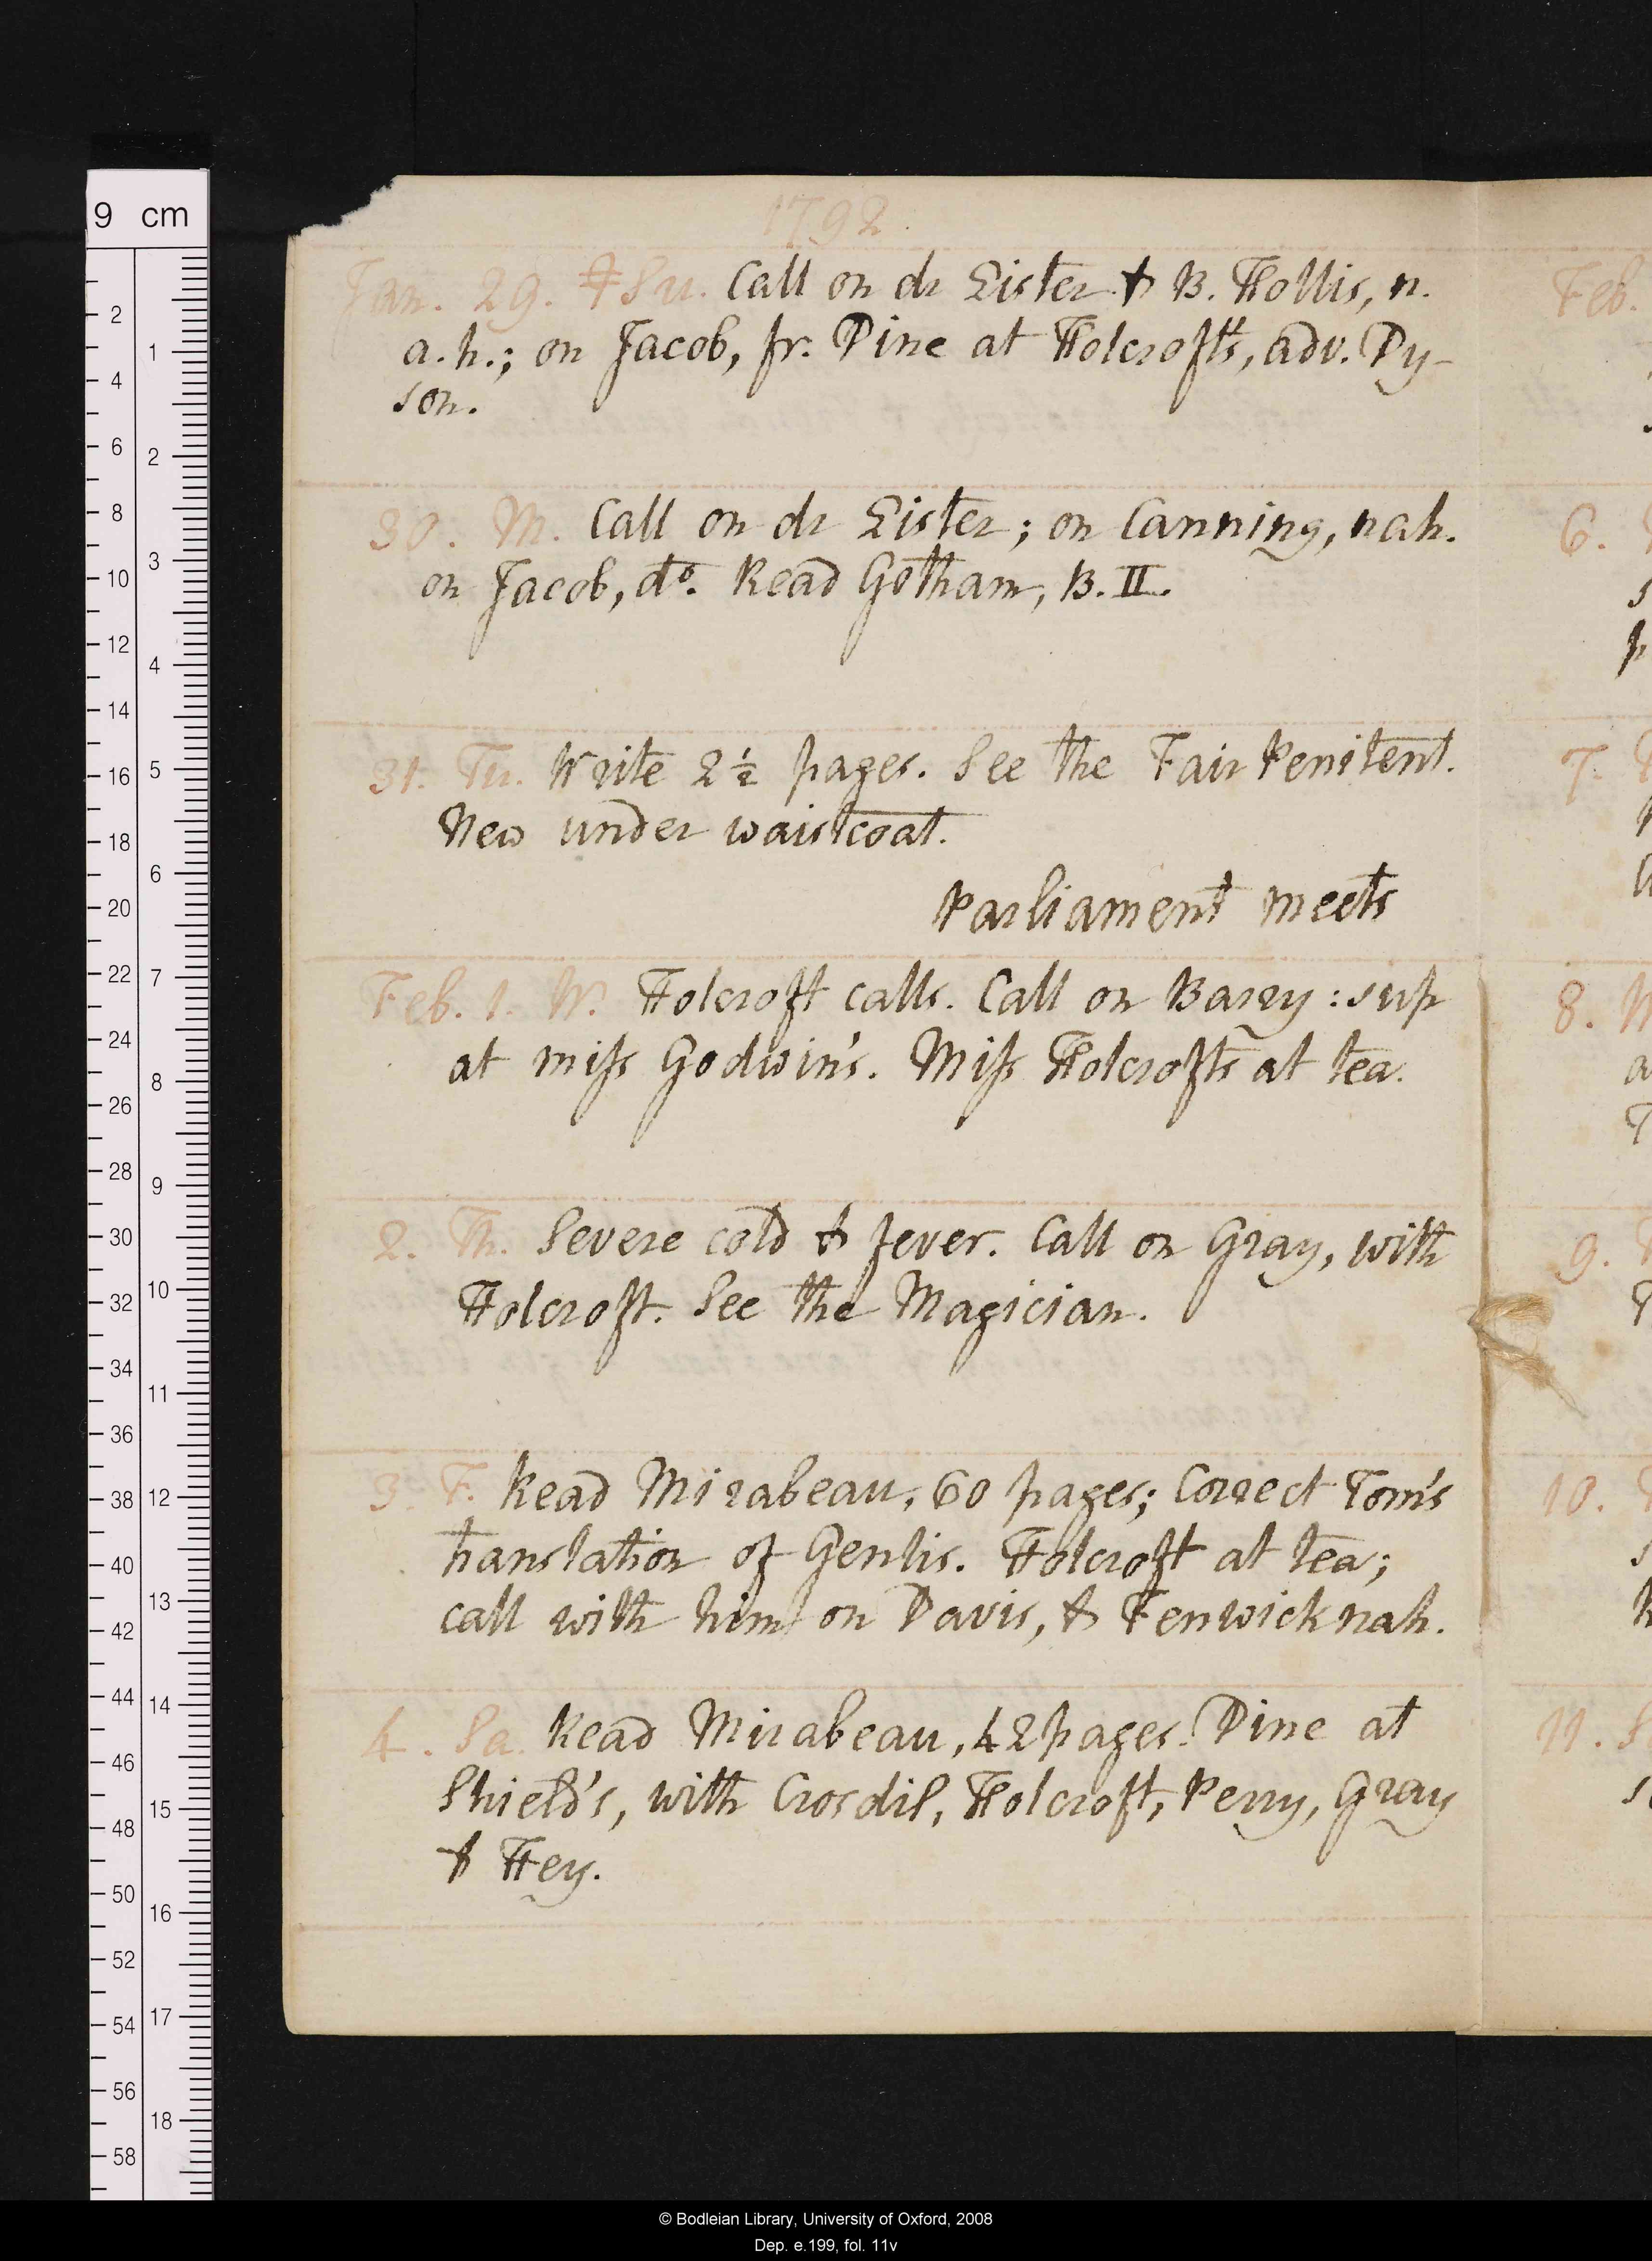 1792.
Jan. 29. ‡ Su. Call on dr Lister & B. Hollis, n.
a. h.; on Jacob, fr. Dine at Holcroft's, adv. Dy-
son.
30. M. Call on dr Lister; on Canning, nah.
on Jacob, do. Read Gotham, B. II.
31. Tu. Write 2 ½ pages. See the Fair Penitent.
New under waistcoat.
Parliament meets
Feb. 1. W. Holcroft calls. Call on Barry: sup
at miss Godwin's. Miss Holcrofts at tea.
2. Th. Severe cold & fever. Call on Gray, with
Holcroft. See the Magician.
3. F. Read Mirabeau, 60 pages; Correct Tom's
translation of Genlis. Holcroft at tea;
call with him on Davis, & Fenwick nah.
4. Sa. Read Mirabeau, 42 pages. Dine at
Shield's, with Crosdil, Holcroft, Perry, Gray
& Hey.
Feb.
6.
7.
8.
9.
10.
11.
9 cm
2
4
6
8
10
12
14
16
18
20
22
24
26
28
30
32
34
36
38
40
42
44
46
48
50
52
54
56
58
1
2
3
4
5
6
7
8
9
10
11
12
13
14
15
16
17
18
© Bodleian Library, University of Oxford, 2008
Dep. e.199, fol. 11v